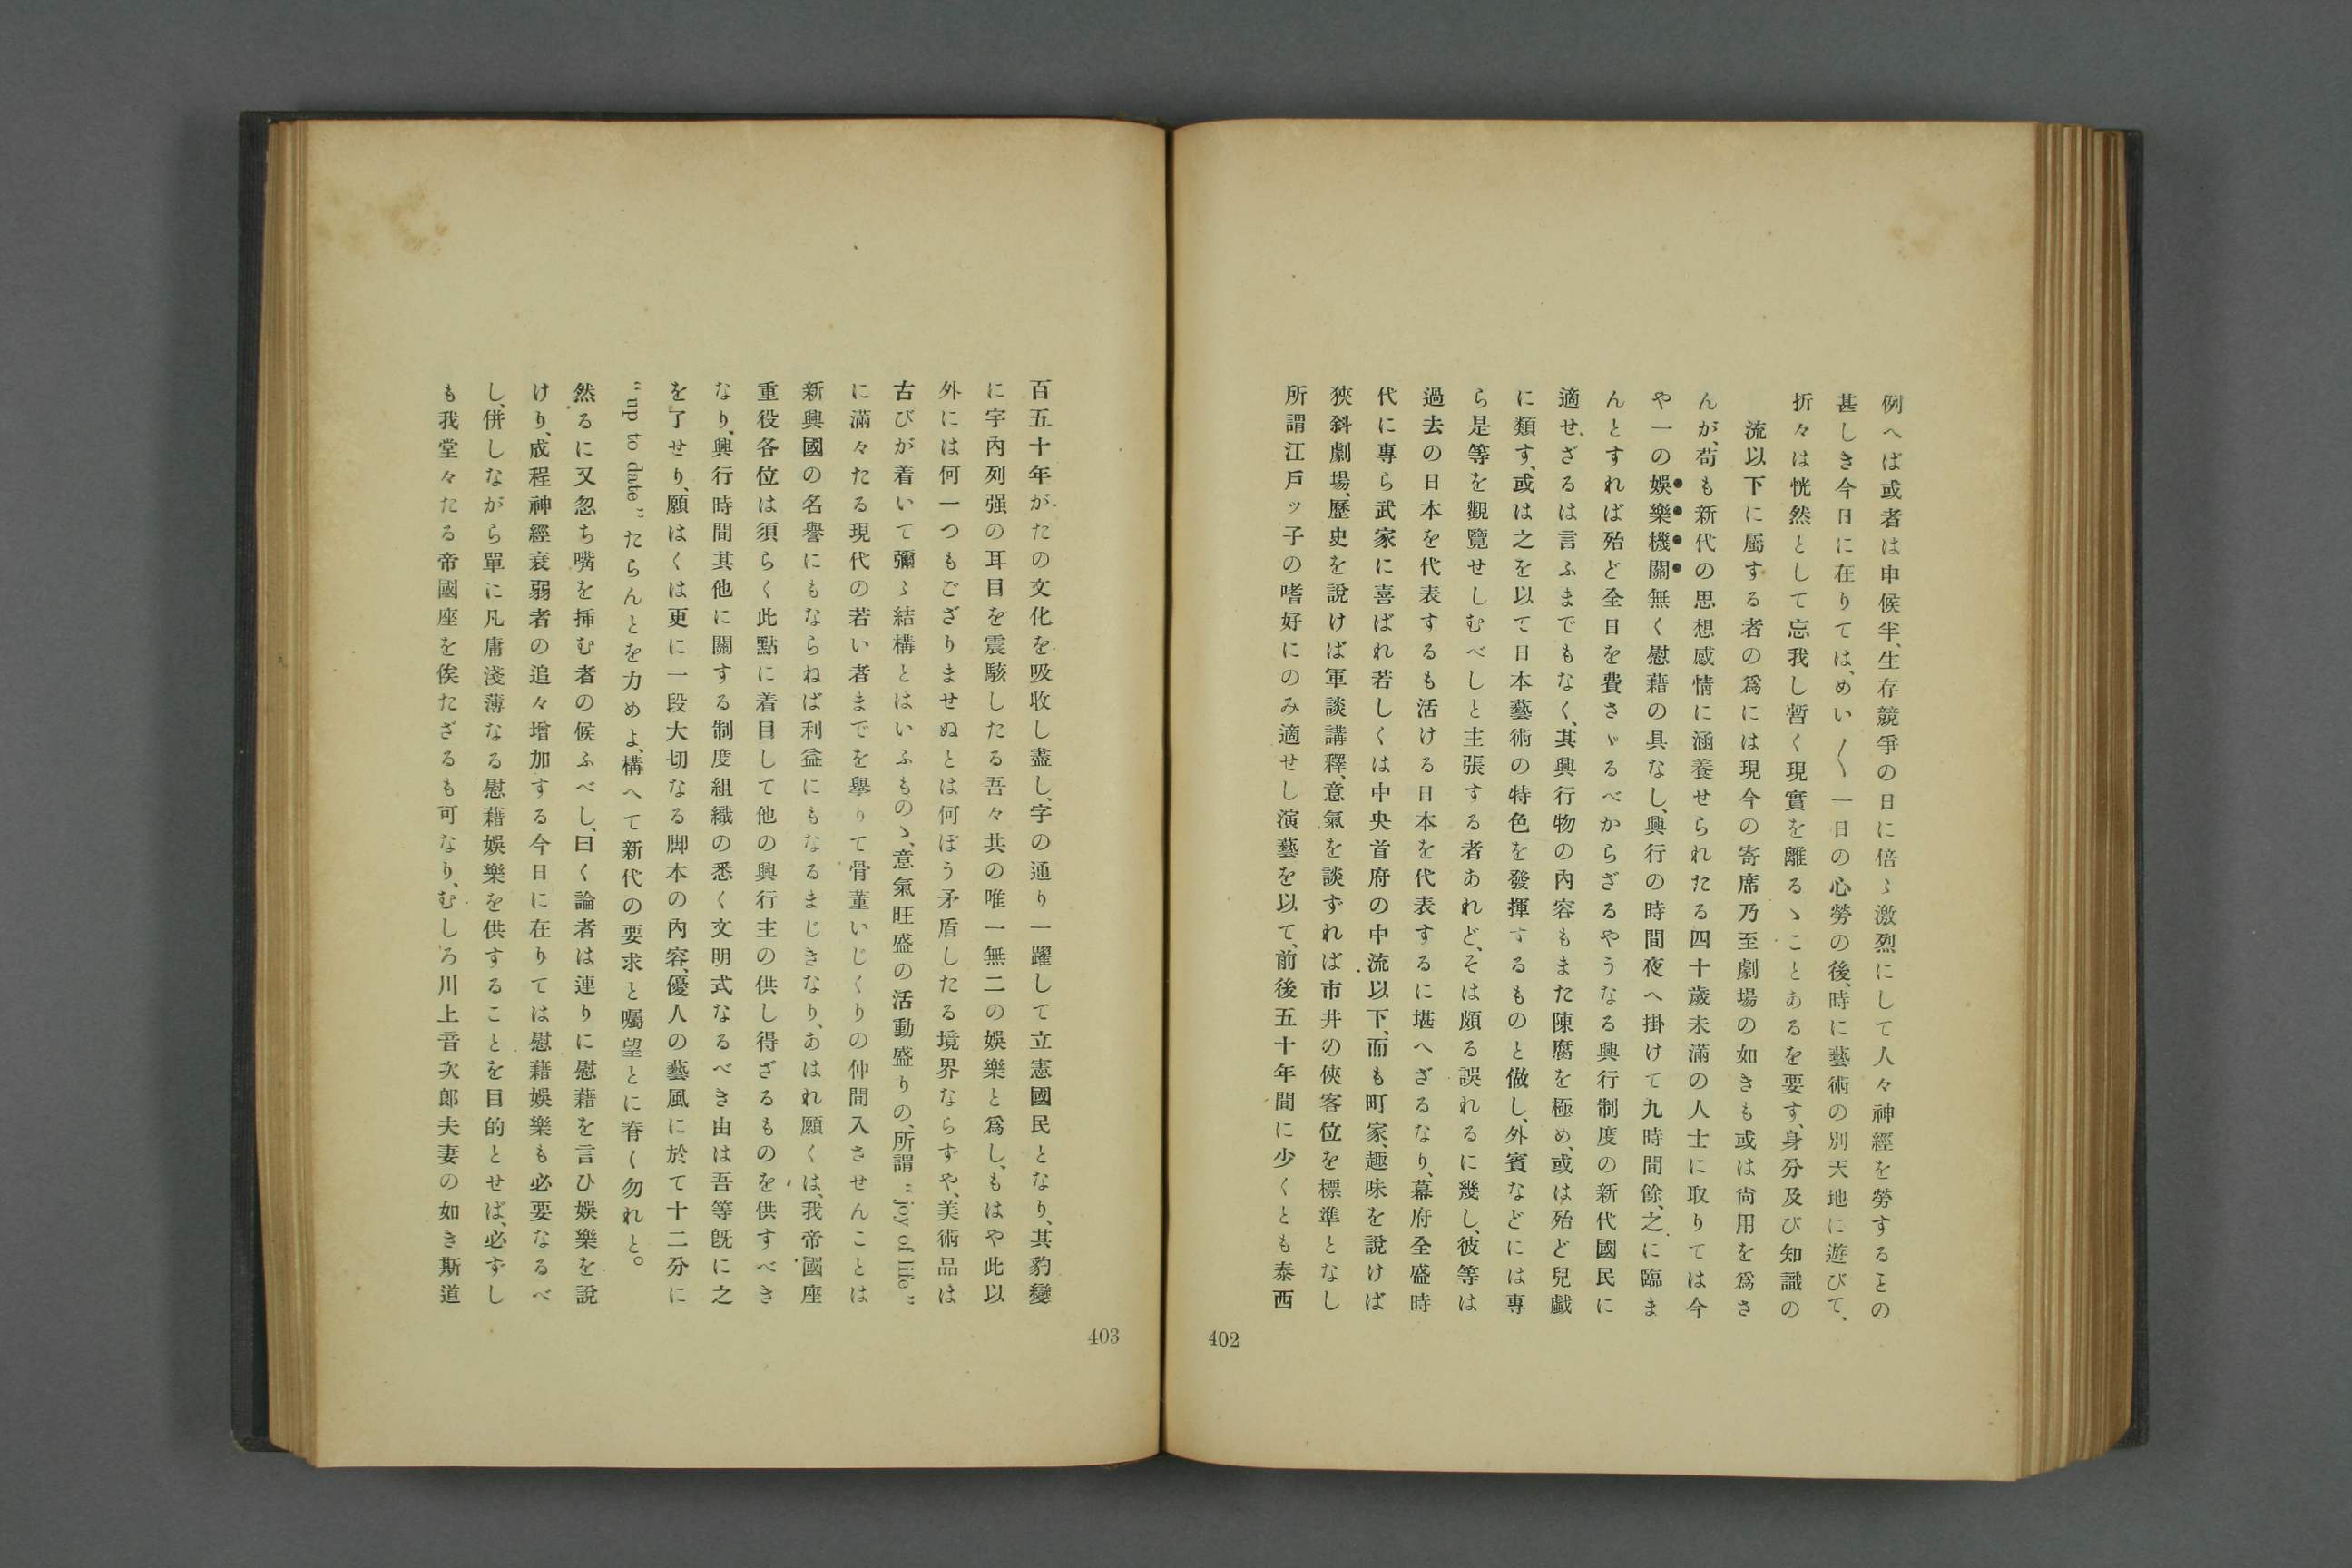 例へば或者は申候半、生存競爭の日に倍〻激烈にして人々神經を勞するとの
甚しき今日に在りては、めい〱一日の心勞の後、時に藝術の別天地に遊びて、
折々は恍然として忘我し暫く現實を離るゝことあるを要す、身分及び知識の
流以下に屬する者の爲には現今の寄席乃至劇場の如きも或は尙用を爲さ
んが、苟も新代の思想感情に涵養せられたる四十歲未滿の人士に取りては今
や一の娯樂機關無く慰藉の具なし、興行の時間夜へ掛けて九時間餘、之に臨ま
んとすれば殆ど全日を費さゞるべからざるやうなる興行制度の新代國民に
適せざるは言ふまでもなく、其興行物の內容もまた陳腐を極め、或は殆ど兒戲
に類す、或は之を以て日本藝術の特色を發揮するものと做し、外賓などには專
ら是等を觀覽せしむべしと主張する者あれど、そは頗る誤れるに幾し、彼等は
過去の日本を代表するも活ける日本を代表するに堪へざるなり、幕府全盛時
代に專ら武家に喜ばれ若しくは中央首府の中流以下、而も町家、趣味を說けば
狹斜劇場、歷史を說けば軍談講釋、意氣を談ずれば市井の俠客位を標準となし
所謂江戶ッ子の嗜好にのみ適せし演藝を以て、前後五十年間に少くとも泰西
402
百五十年がたの文化を吸收し盡し、字の通り一躍して立憲國民となり、其豹變
に宇內列强の耳目を震駭したる吾々共の唯一無二の娯樂と爲し、もはや此以
外には何一つもござりませぬとは何ぼう矛盾したる境界ならずや、美術品は
古びが着いて彌〻結構とはいふものゝ、意氣旺盛の活動盛りの、所謂“joy of life”
に滿々たる現代の若い者までを擧りて骨董いじくりの仲間入させんことは
新興國の名譽にもならねば利益にもなるまじきなり、あはれ願くは、我帝國座
重役各位は須らく此點に着目して他の興行主の供し得ざるものを供すべき
なり、興行時間其他に關する制度組織の悉く文明式なるべき由は吾等旣に之
を了せり、願はくは更に一段大切なる脚本の內容、優人の藝風に於て十二分に
“up to date”たらんとを力めよ、構へて新代の要求と囑望とに脊く勿れと。
然るに又忽ち嘴を揷む者の候ふべし、曰く論者は連りに慰藉を言ひ娯樂を說
けり、成程神經衰弱者の追々增加する今日に在りては慰藉娯樂も必要なるべ
し、併しながら單に凡庸淺薄なる慰藉娯樂を供することを目的とせば、必ずし
も我堂々たる帝國座を俟たざるも可なり、むしろ川上音次郎夫妻の如き斯道
403